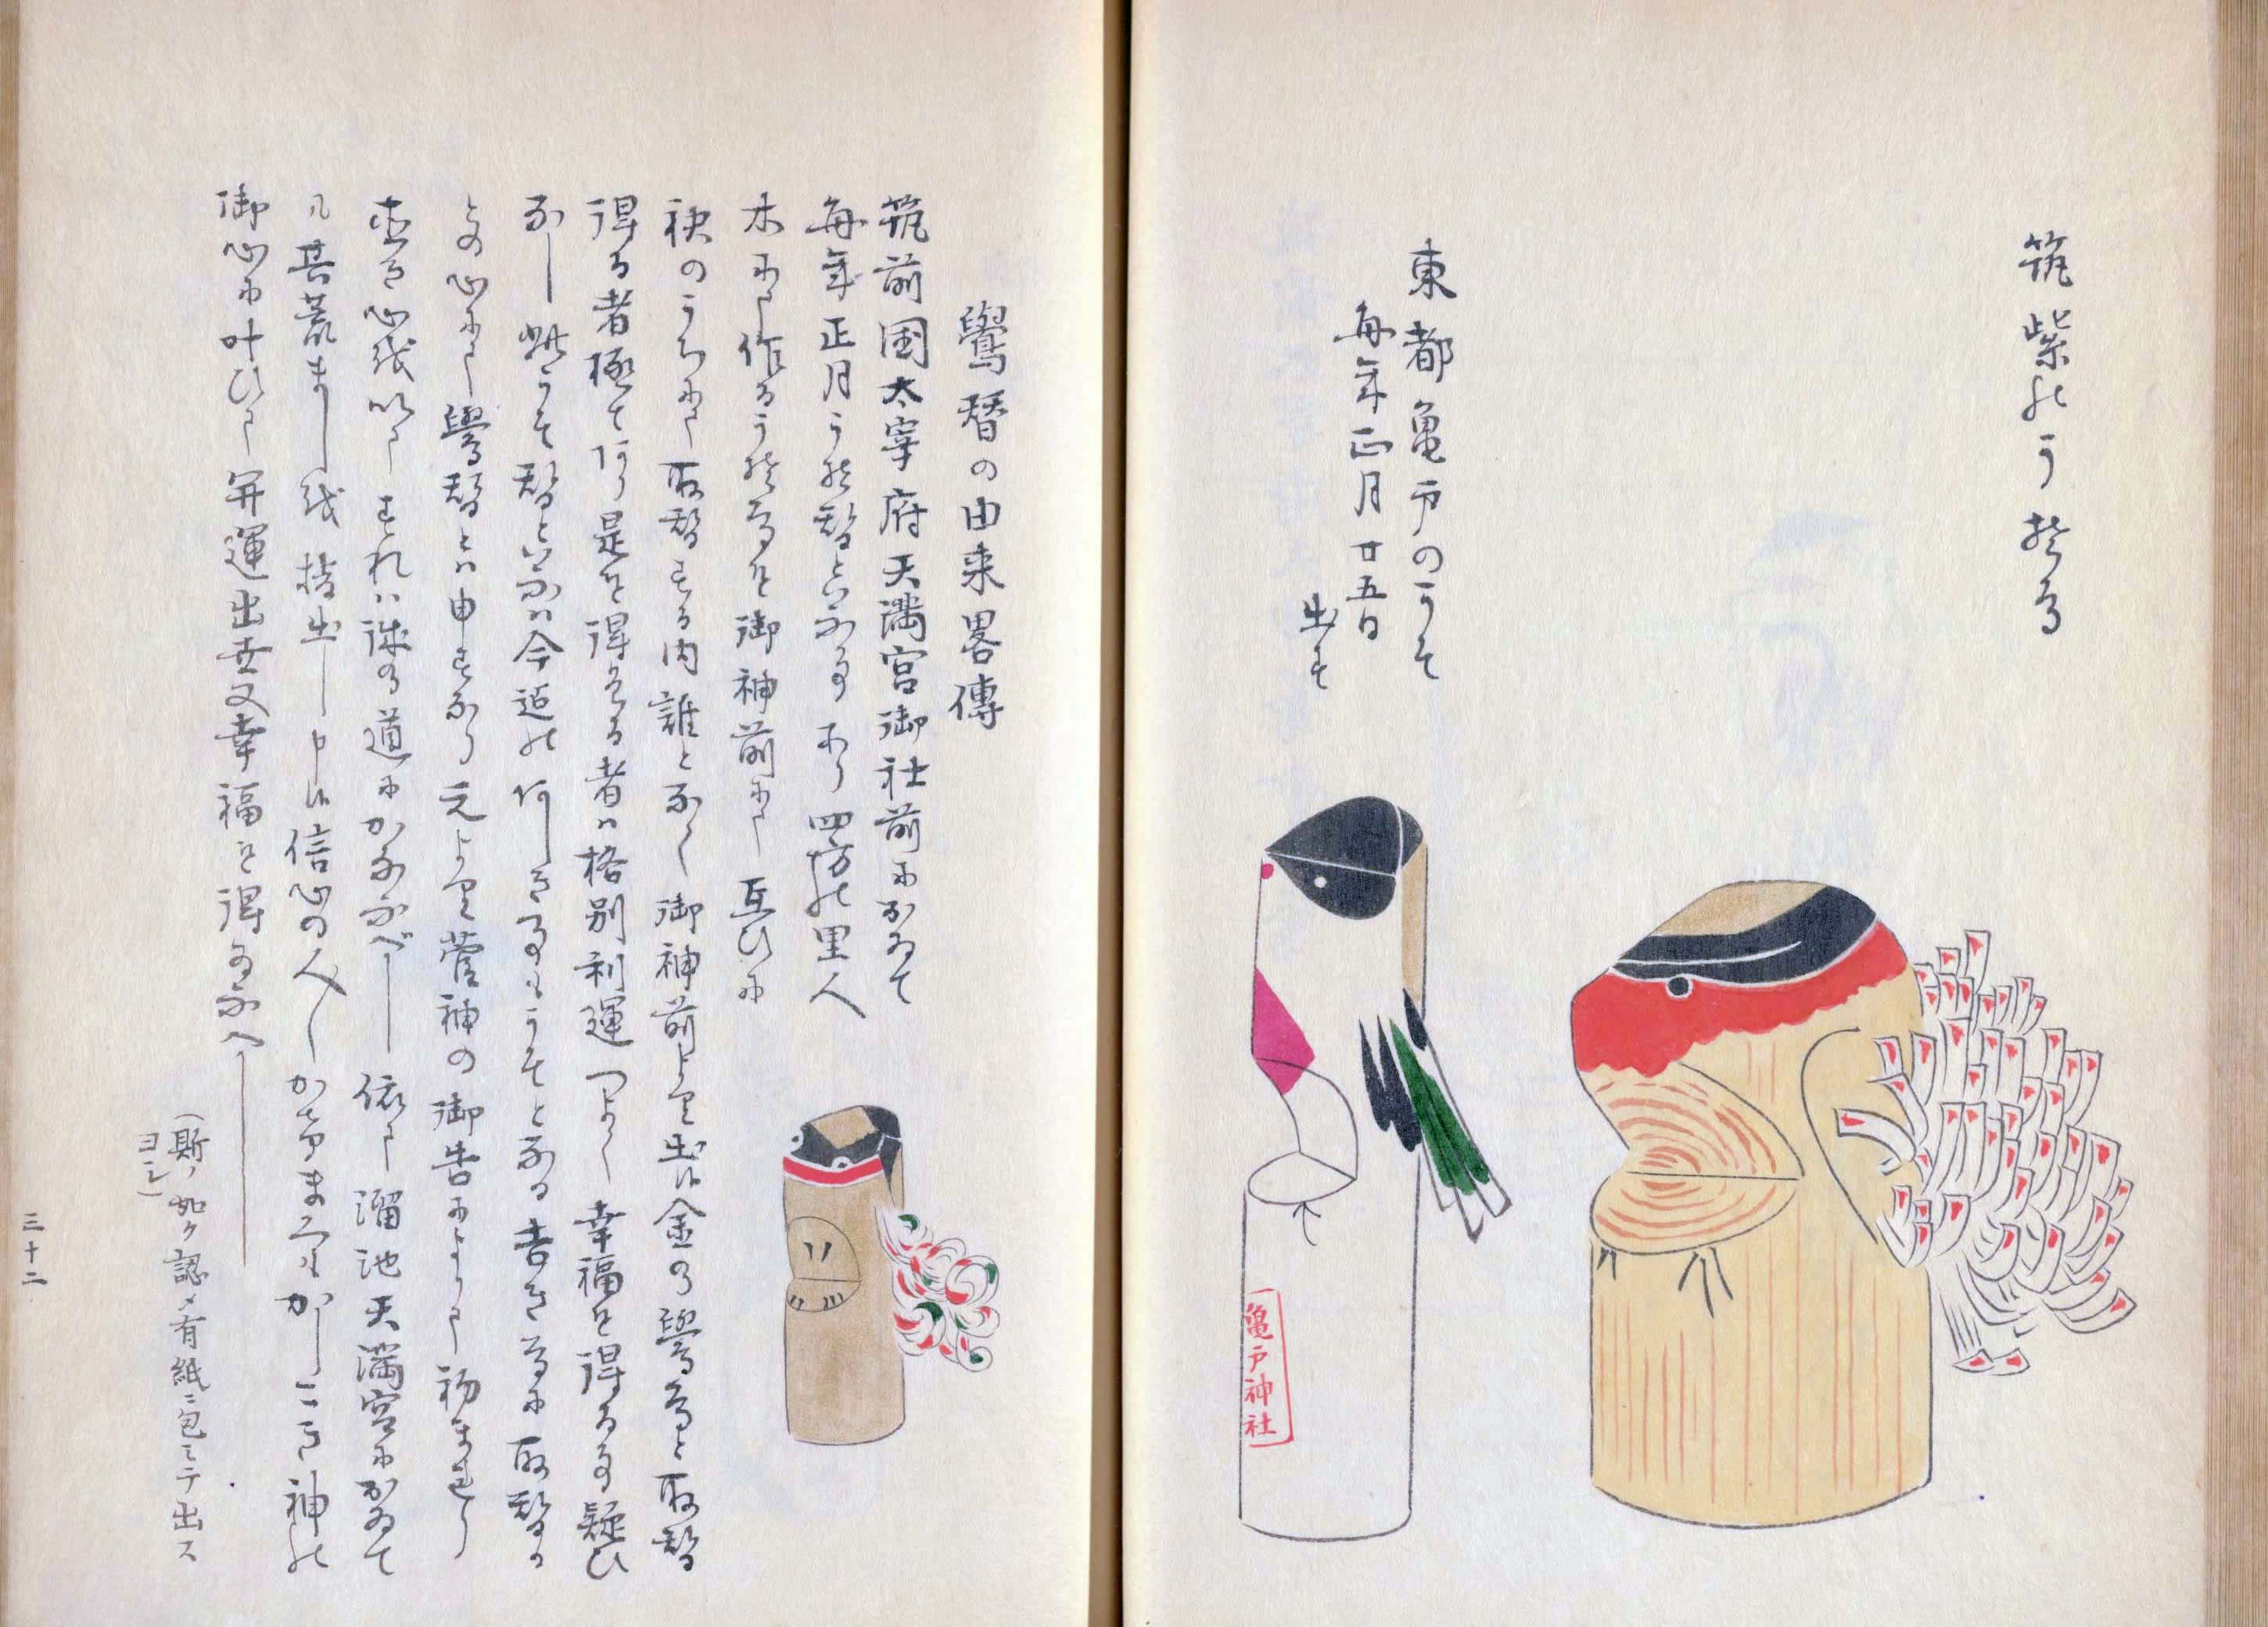 筑紫のうそ鳥
東都亀戸のうそ
毎年正月廿五日
出す
亀戸神社
鷽替の由来畧傳
筑前国太宰府天満宮御社前におゐて
毎年正月うそ替といふ事あり四方の里人
木にて作るうそ鳥を御神前にて互ひに
袂のうちにて取替する内誰となく御神前より出す金の鷽鳥と取替
得る者極て有り是を得たる者は格別利運つよく幸福を得る事疑ひ
なし此うそ替といふは今迄の悪しき事もうそとなる吉き事に取替る
との心にて鷽替とは申すなり元より菅神の御告によりて初まれり
直き心を以てすれは誠の道にかなふべし依て溜池天満宮におゐて
其荒まし を 出し 信心の人 かしこき神の
御心に叶ひて開運出世又幸福を得たまふへし
(斯ノ如ク認メ有紙ニ包ミテ出ス
ヨシ)
三十二